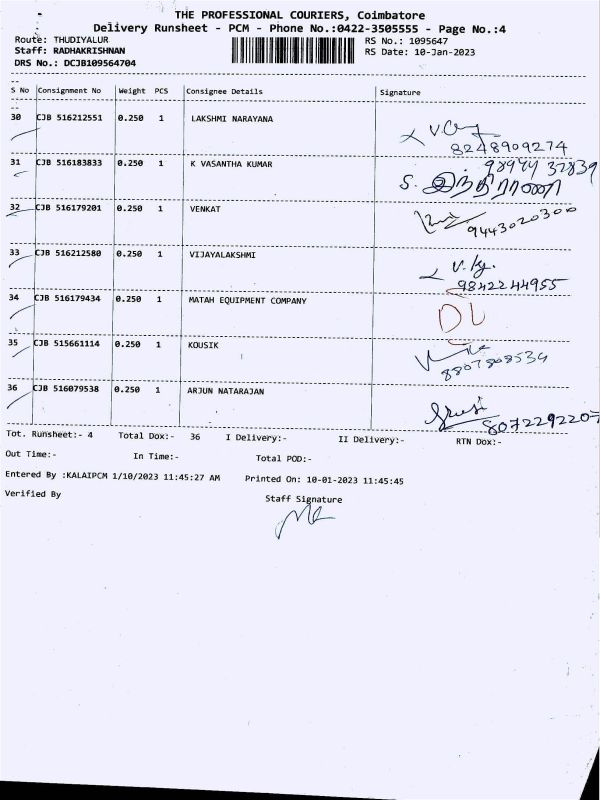 THE PROFESSIONAL COURIERS, Coimbatore
Delivery Runsheet - PCM - Phone No.:0422-3505555 - Page No.:4
Route: THUDIYALUR
RS No.: 1095647
Staff: RADHAKRISHNAN
RS Date: 10-Jan-2023
DRS No.: DCJB109564704
S No Consignment No Weight PCS Consignee Details Signature
30 CJB 516212551 0.250 1 LAKSHMI NARAYANA
8248909274
31 CJB 516183833 0.250 1 K VASANTHA KUMAR
98944 32839
S. இந்திராணி
32 CJB 516179201 0.250 1 VENKAT
9443020300
33 CJB 516212580 0.250 1 VIJAYALAKSHMI
9842244955
34 CJB 516179434 0.250 1 MATAH EQUIPMENT COMPANY
DL
35 CJB 515661114 0.250 1 KOUSIK
8807808534
36 CJB 516079538 0.250 1 ARJUN NATARAJAN
8072292207
Tot. Runsheet:- 4 Total Dox:- 36 I Delivery:- II Delivery:- RTN Dox:-
Out Time:- In Time:- Total POD:-
Entered By :KALAIPCM 1/10/2023 11:45:27 AM Printed On: 10-01-2023 11:45:45
Verified By Staff Signature